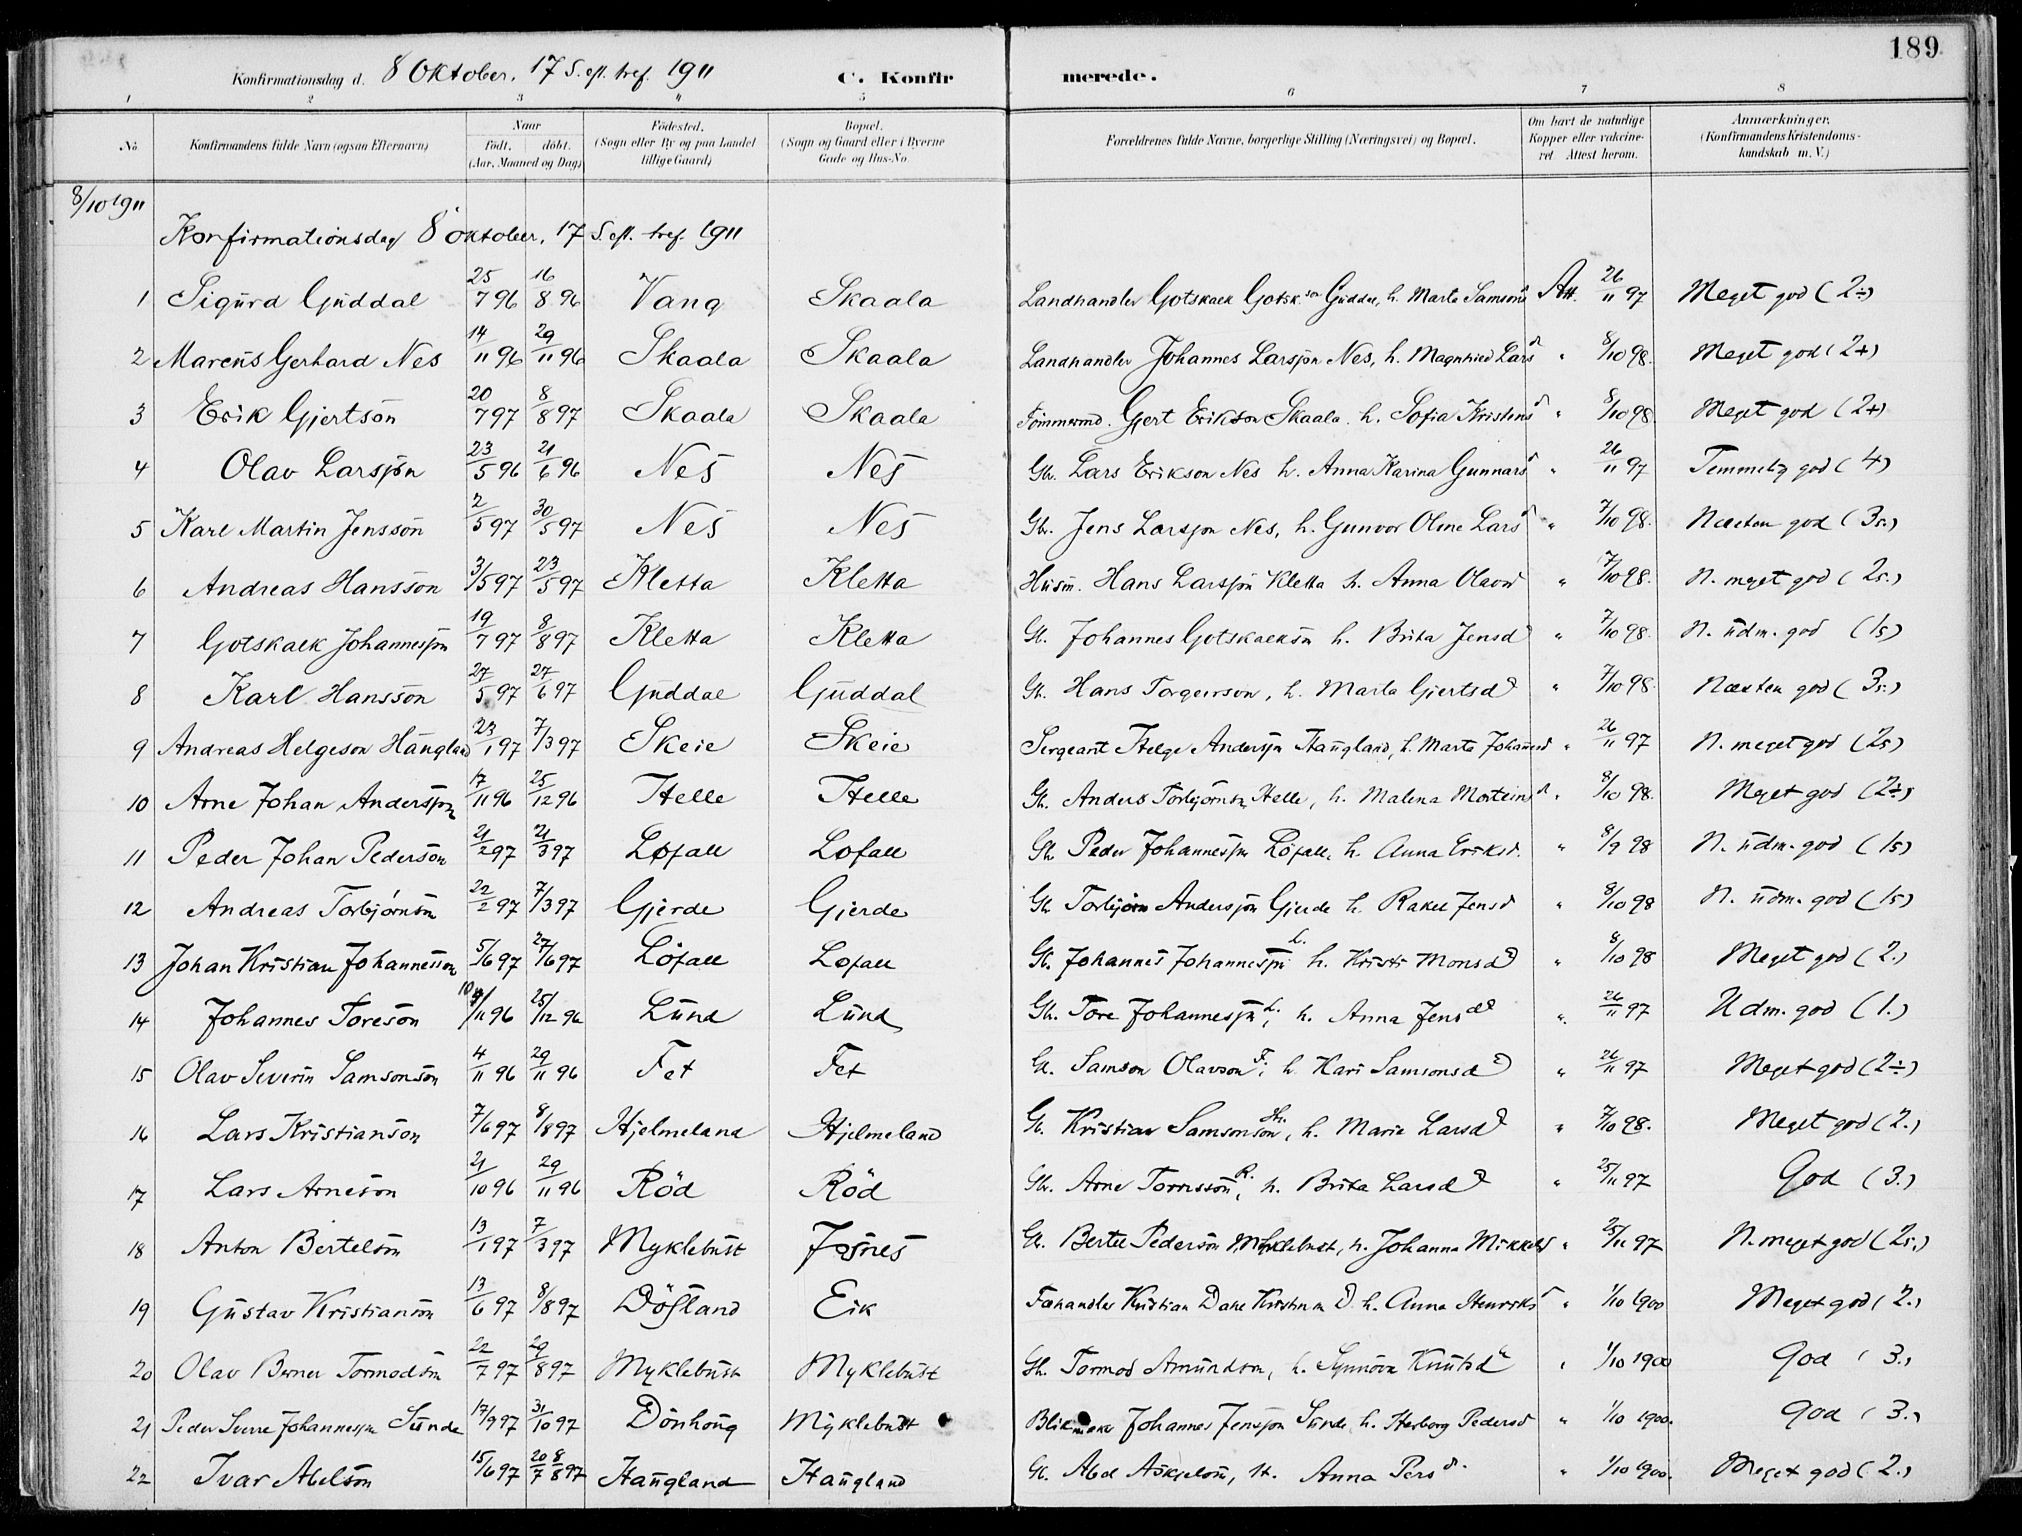 189
Konfirmationsdag d. 8 Oktober. 17 S. eft. tref. 1911 C. Konfirmerede.
1 2 3 4 5 6 7 8
No. Konfirmandens fulde Navn (ogsaa Efternavn) Naar født. døbt. (Aar, Maaned og Dag) Fødested. (Sogn eller By og paa Landet tillige Gaard) Bopæl. (Sogn og Gaard eller i Byerne Gade og Hus-No. Forældrenes fulde Navne, borgerlige Stilling (Næringsvei) og Bopæl. Om havt de naturlige Kopper eller vakcineret Attest herom. Anmærkninger. (Konfirmandens Kristendomskundskab m. V.)
8/10 1911
Konfirmationsdag 8 oktober, 17 S. eft. tref. 1911
1 Sigurd Guddal 25/7 96 16/8 96 Vang Skaala Landhandler Gotskalk Gotsk.son Guddal, h. Marta Samsons Att. 26/11 97 Meget god (2÷)
2 Marcus Gerhard Nes 14/11 96 29/11 96 Skaala Skaala Landhandler Johannes Larsson Nes, h. Magnhild Larsd " 8/10 98. Meget god (2+)
3 Erik Gjertson 20/7 97 8/8 97 Skaala Skaala Tømmermd. Gjert Erikson Skaala. h. Sofia Kristensd " 8/10 98. Meget god (2+)
4 Olav Larsson 23/5 96 21/6 96 Nes Nes Gb. Lars Erikson Nes h. Anna Karina Gunnarsd " 26/11 97 Temmelig god (4)
5 Karl Martin Jensson 2/5 97 30/5 97 Nes Nes Gb. Jens Larsson Nes, h. Gunvor Oline Larsd " 7/10 98. Næsten god (3s.)
6 Andreas Hansson 3/5 97 23/5 97 Kletta Kletta Husm. Hans Larsson Kletta h. Anna Olavsd " 7/10 98. N. meget god (2s.)
7 Gotskalk Johannesson 19/7 97 8/8 97 Kletta Kletta Gb. Johannes Gotskalkson h. Brita Jensd " 7/10 98. N. udm. god (1s)
8 Karl Hansson 27/5 97 27/6 97 Guddal Guddal Gb. Hans Torgerson, h. Marta Gjertsd " 7/10 98. Næsten god (3s.)
9 Andreas Helgeson Haugland 23/1 97 7/3 97 Skeie Skeie Sergeant Helge Andersson Haugland, h. Marta Johannesd " 26/11 97 N. meget god (2s)
10 Arne Johan Andersson 17/11 96 25/12 96 Helle Helle Gb. Anders Torbjørnson Helle, h. Malena Mortensd " 8/10 98. Meget god (2÷)
11 Peder Johan Pederson 21/2 97 21/3 97 Løfall Løfall Gb Peder Johannesson Løfall, h. Anna Eriksd. " 8/9 98 N. udm. god (1s)
12 Andreas Torbjørnson 22/2 97 7/3 97 Gjerde Gjerde Gb Torbjørn Andersson Gjerde h. Rakel Jensd " 8/10 98 N. udm. god (1s)
13 Johan Kristian Johannesson 5/6 97 27/6 97 Løfall Løfall Gb. Johannes Johannesson L. h. Kristi Monsd " 8/10 98 Meget god (2.)
14 Johannes Toreson 10/11 96 25/12 96 Lund Lund Gb. Tore Johannesson L., h. Anna Jensd " 26/11 97 Udm. god (1.)
15 Olav Severin Samsonson 4/11 96 29/11 96 Fet Fet Gb. Samson Olavson F., h. Kari Samsonsd " 26/11 97 Meget god (2÷)
16 Lars Kristianson 7/6 97 8/8 97 Hjelmeland Hjelmeland Gb. Kristian Samsonson Hj., h. Marie Larsd " 7/10 98. Meget god (2.)
17 Lars Arneson 21/10 96 29/11 96 Röd Röd Gb. Arne Tornsson R., h. Brita Larsd " 25/11 97 God (3.)
18 Anton Bertelson 13/1 97 7/3 97 Myklebust Josnes Gb. Bertel Pederson Myklebust, h. Johanna Mikkelsd " 25/11 97 N. meget god (2s.)
19 Gustav Kristianson 13/6 97 8/8 97 Dösland Eik Kristian h. Anna Henriksd " 1/10 1900 Meget god (2.)
20 Olav Berner Tormodson 22/7 97 29/8 97 Myklebust Myklebust Gb. Tormod Amundson, h. Synnöva Knutsd " 1/10 1900 God (3.)
21 Peder Sverre Johannesson Sunde 17/9 97 31/10 97 Dönhoug Myklebust Blikmaker Johannes Jensson Sunde, h. Herborg Pedersd " 1/10 1900. God (3.)
22 Ivar Abelson 15/6 97 20/7 8/8 97 Haugland Haugland Gb. Abel Askjelson, h. Anna Persd. " 1/10 1900. Meget god (2.)